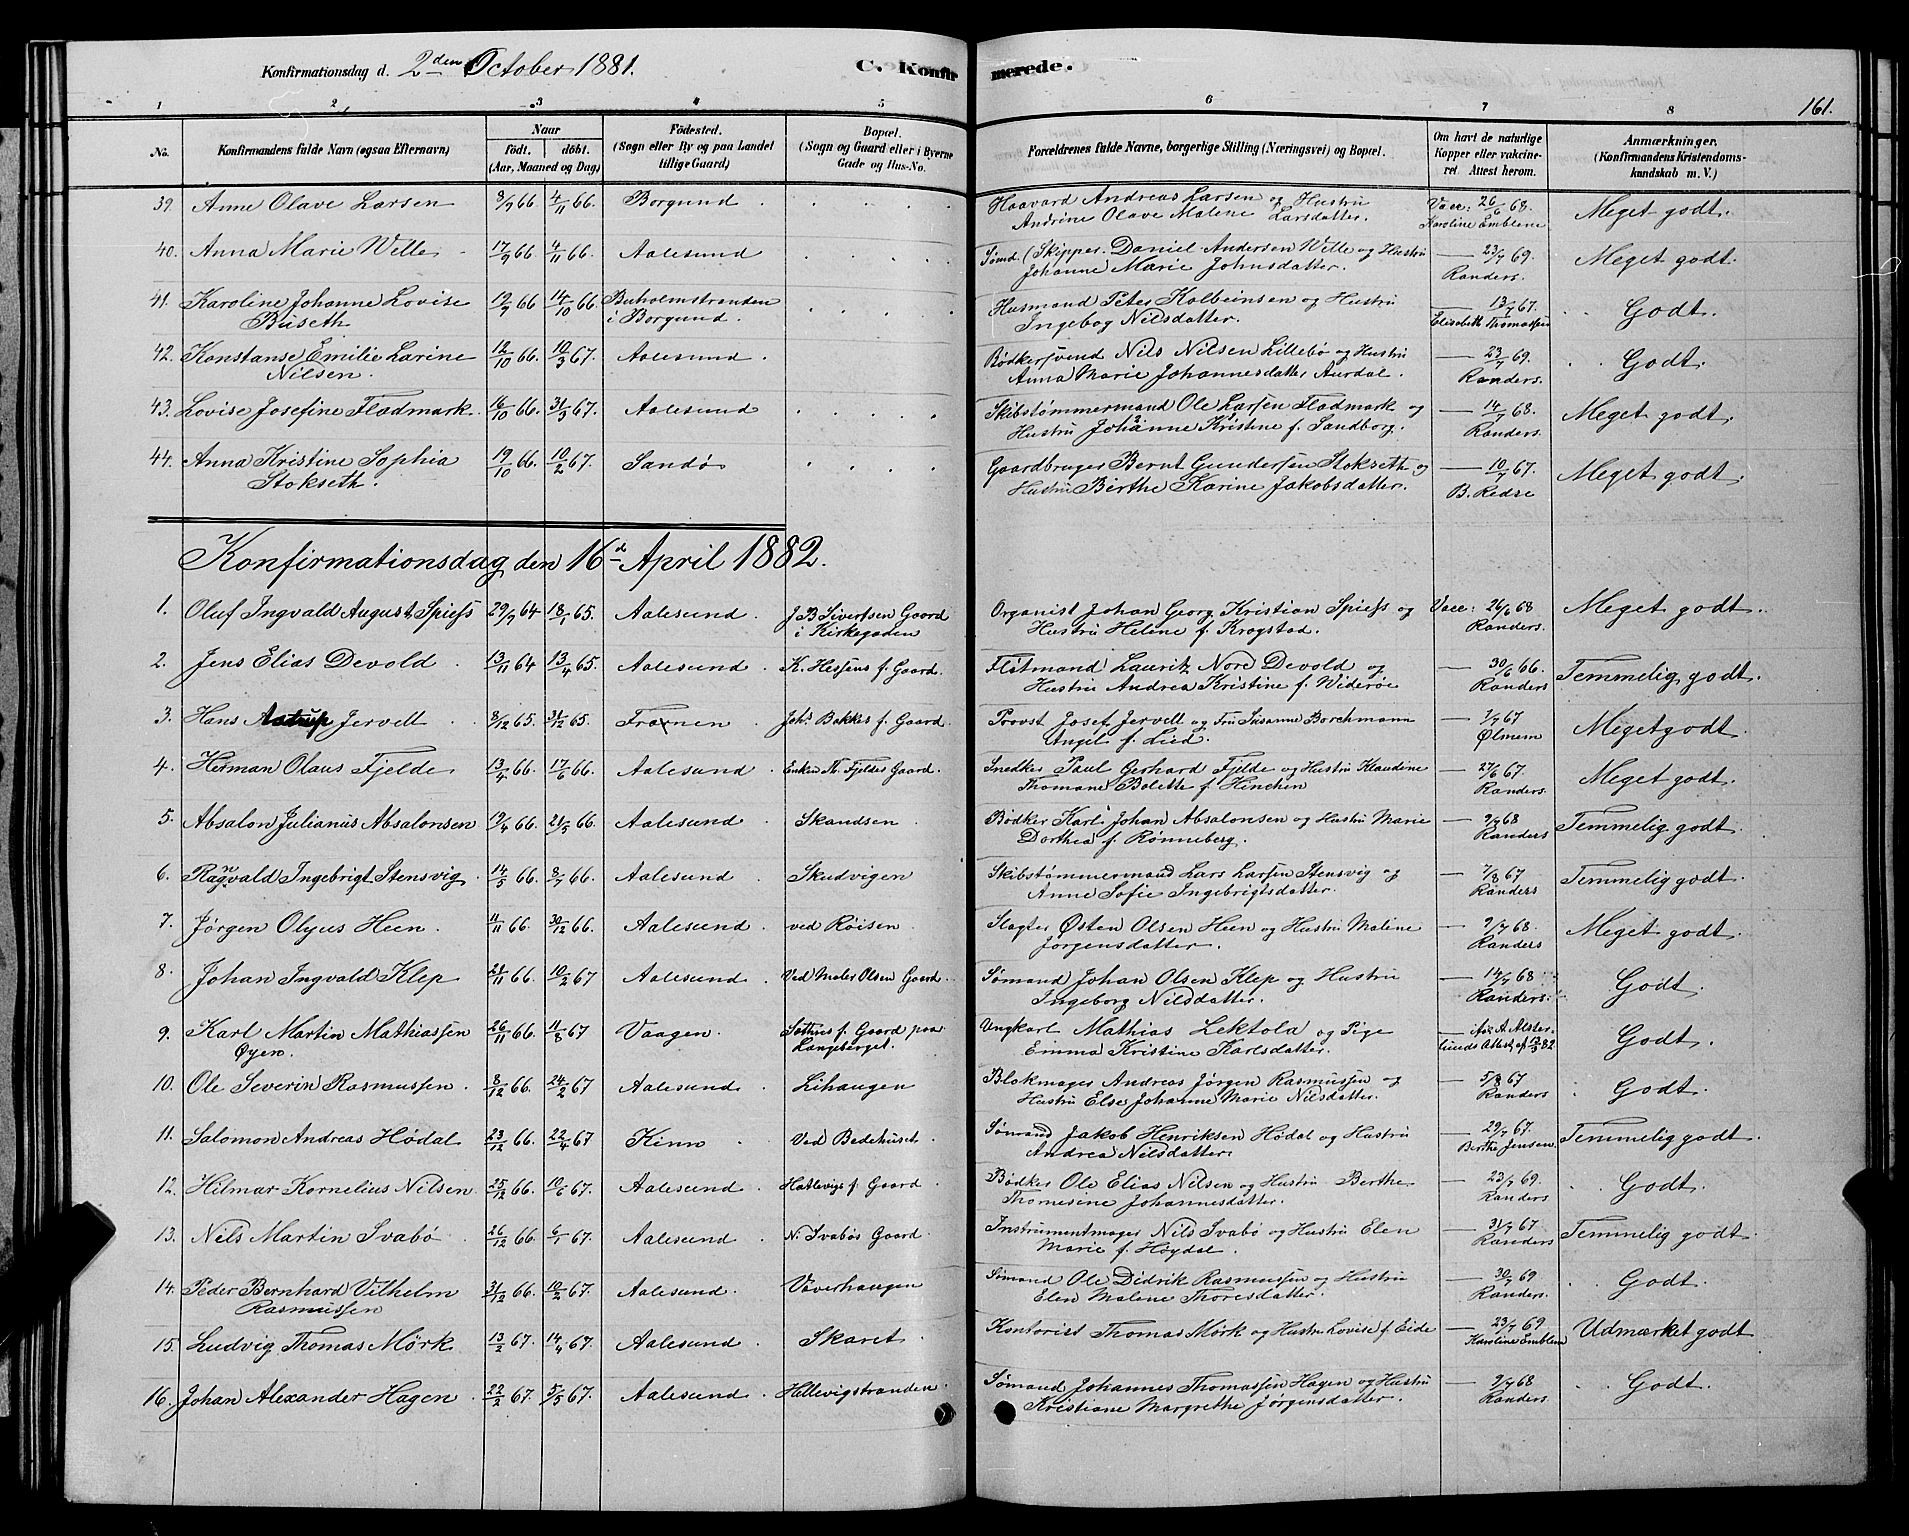 Konfirmationsdag d. 2den October 1881. C. Konfirmerede. 161.
1 2 3 4 5 6 7 8
No. Konfirmandens fulde Navn (ogsaa Efternavn) Naar født. døbt. (Aar, Maaned og Dag) Födested. (Sogn eller By og paa Landet tillige Gaard) Bopæl. (Sogn og Gaard eller i Byerne Gade og Hus-No. Forældrenes fulde Navne, borgerlige Stilling (Næringsvei) og Bopæl. Om havt de naturlige Kopper eller vakcineret. Attest herom. Anmærkninger. (Konfirmandens Kristendomskundskab m. V.)
39. Anne Olave Larsen 8/9 66 4/11 66. Borgund Haavard Andreas Larsen og Hustru Vacc: 26/6 68. Meget godt.
Andrine Olave Malene Larsdatter. Karoline Emblem
40. Anna Marie Welle 17/9 66. 4/11 66. Aalesund Sømd. (Skipper. Daniel Andersen Welle og Hustru — 23/7 69. Meget godt.
Johanne Marie Johnsdatter. Randers.
41. Karoline Johanne Lovise 19/9 66 14/10 66. Buholmstranden Husmand Peter Kolbeinsen og Hustru — 13/7 67. Godt.
Buseth i Borgund. Ingebog Nilsdatter. Elisabeth Thomassen
42. Konstanse Emilie Larine 12/10 66. 10/3 67. Aalesund Bødkersvend Nils Nilsen Lillebø og Hustru — 23/7 69. Godt.
Nilsen. Anna Marie Johannesdatter Aurdal. Randers.
43. Lovise Josefine Flodmark 16/10 66. 31/3 67. Aalesund Skibstømmermand Ole Larsen Flodmark og — 14/7 68. Meget godt.
Hustru Johanne Kristine f. Sandborg. Randers.
44. Anna Kristine Sophia 19/10 66. 10/2 67. Sandø Gaardbruger Bernt Gundersen Stokseth og — 10/7 67. Meget godt.
Stokseth. Hustru Birthe Karine Jakobsdatter. B. Redse
Konfirmationsdag den 16d April 1882.
1. Oluf Ingvald August Spiess 29/9 64 18/1 65. Aalesund J B Sivertsen Gaard Organist Johan Georg Kristian Spiess og Vacc: 26/6 68 Meget godt.
i Kirkegaden Hustru Helene f. Krogstad. Randers.
2. Jens Elias Devold 13/11 64 13/4 65. Aalesund K. Hessens f. Gaard. Fløtmand Lauritz Nore Devold og — 30/6 66. Temmelig godt.
Hustru Andrea Kristine f. Widerøe Randers
3. Hans Astrup Jervell 8/12 65. 31/12 65. Frænen Johs. Bakkes f. Gaard Provst Josef Jervell og Fru Susanne Borchmann — 1/7 67 Meget godt.
Angel f. Lied. Ølmem
4. Herman Olaus Fjelde 13/4 66. 17/6 66. Aalesund Enken Th. Fjeldes Gaard. Snedker Paul Gerhard Fjelde og Hustru Klaudine — 27/6 67. Meget godt.
Thomane Bolette f. Hinchen Randers.
5. Absalon Julianus Absalonsen 19/4 66. 21/5 66. Aalesund Skandsen Bødker Karl Johan Absalonsen og Hustru Marie — 9/7 68 Temmelig godt.
Dorthea f. Rønneberg. Randers
6. Ragnvald Ingebrigt Stensvig 14/5 66. 8/7 66. Aalesund Skudvigen Skibstømmermand Lars Larsen Stensvig og — 7/8 67 Temmelig godt.
Anne Sofie Ingebrigtsdatter. Randers
7. Jørgen Olyus Heen. 11/11 66. 30/12 66. Aalesund. ved Røisen. Slagter Østen Olsen Heen og Hustru Malene — 9/7 68. Meget godt.
Jørgensdatter. Randers
8. Johan Ingvald Klep 21/11 66. 10/2 67 Aalesund Ved Maler Olsen Gaard Sømand Johan Olsen Klep og Hustru — 14/7 68 Godt.
Ingeborg Nilsdatter. Randers.
9. Karl Martin Mathiassen 26/11 66. 11/8 67 Vaagen. f. Gaard paa Ungkarl Mathias Lektola og Pige Godt.
Øyen. Langeberget. Emma Kristine Karlsdatter. lunds Attest af 12/3 82
10. Ole Severin Rasmussen. 8/12 66. 24/2 67 Aalesund Lihaugen Blokmager Andreas Jørgen Rasmussen og — 5/8 67 Godt.
Hustru Else Johanne Marie Nilsdatter. Randers
11. Salomon Andreas Hødal 23/12 66. 22/4 67 Kinn Ved Bedehuset. Sømand Jakob Henriksen Hødal og Hustru — 29/7 67. Temmelig godt.
Andrea Nilsdatter Berthe Jensen.
12. Hilmar Kornelius Nilsen 25/12 66. 10/6 67. Aalesund Hatlevigs f. Gaard Bødker Ole Elias Nilsen og Hustru Berthe — 23/7 69. Godt.
Thomesine Johannesdatter. Randers
13. Nils Martin Svabø 26/12 66. 6/1 67. Aalesund N. Svabøs Gaard. Instrumentmager Nils Svabø og Hustru Elen — 31/7 67. Temmelig godt.
Marie f. Høydal. Randers
14. Peder Bernhard Vilhelm 31/12 66. 10/2 67. Aalesund. Væverhaugen Sømand Ole Didrik Rasmussen og Hustru — 30/7 69 Godt.
Rasmussen Elen Malene Thoresdatter. Randers.
15. Ludvig Thomas Mørk 13/2 67. 14/4 67. Aalesund Skaret Kontorist Thomas Mørk og Hustru Lovise f. Eide — 23/7 69 Udmærket godt
Karoline Emblem
16. Johan Alexander Hagen 22/2 67. 5/5 67. Aalesund Hellevigstranden Sømand Johannes Thomassen Hagen og Hustru — 9/7 68 Godt.
Kristiane Margrethe Jørgensdatter. Randers.